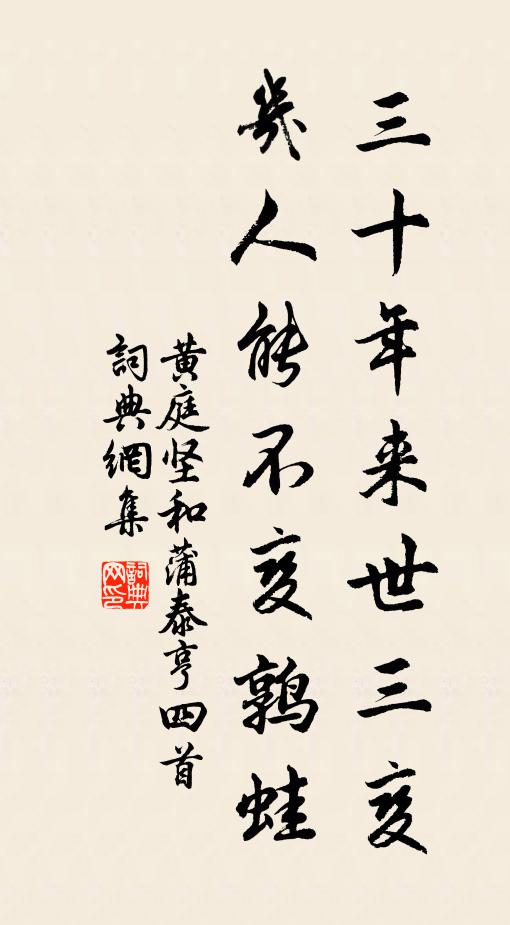 三十年来世三变
几人能不变鹑蛙
黄庭坚和蒲泰亨四首
詞典網集
詞典网印